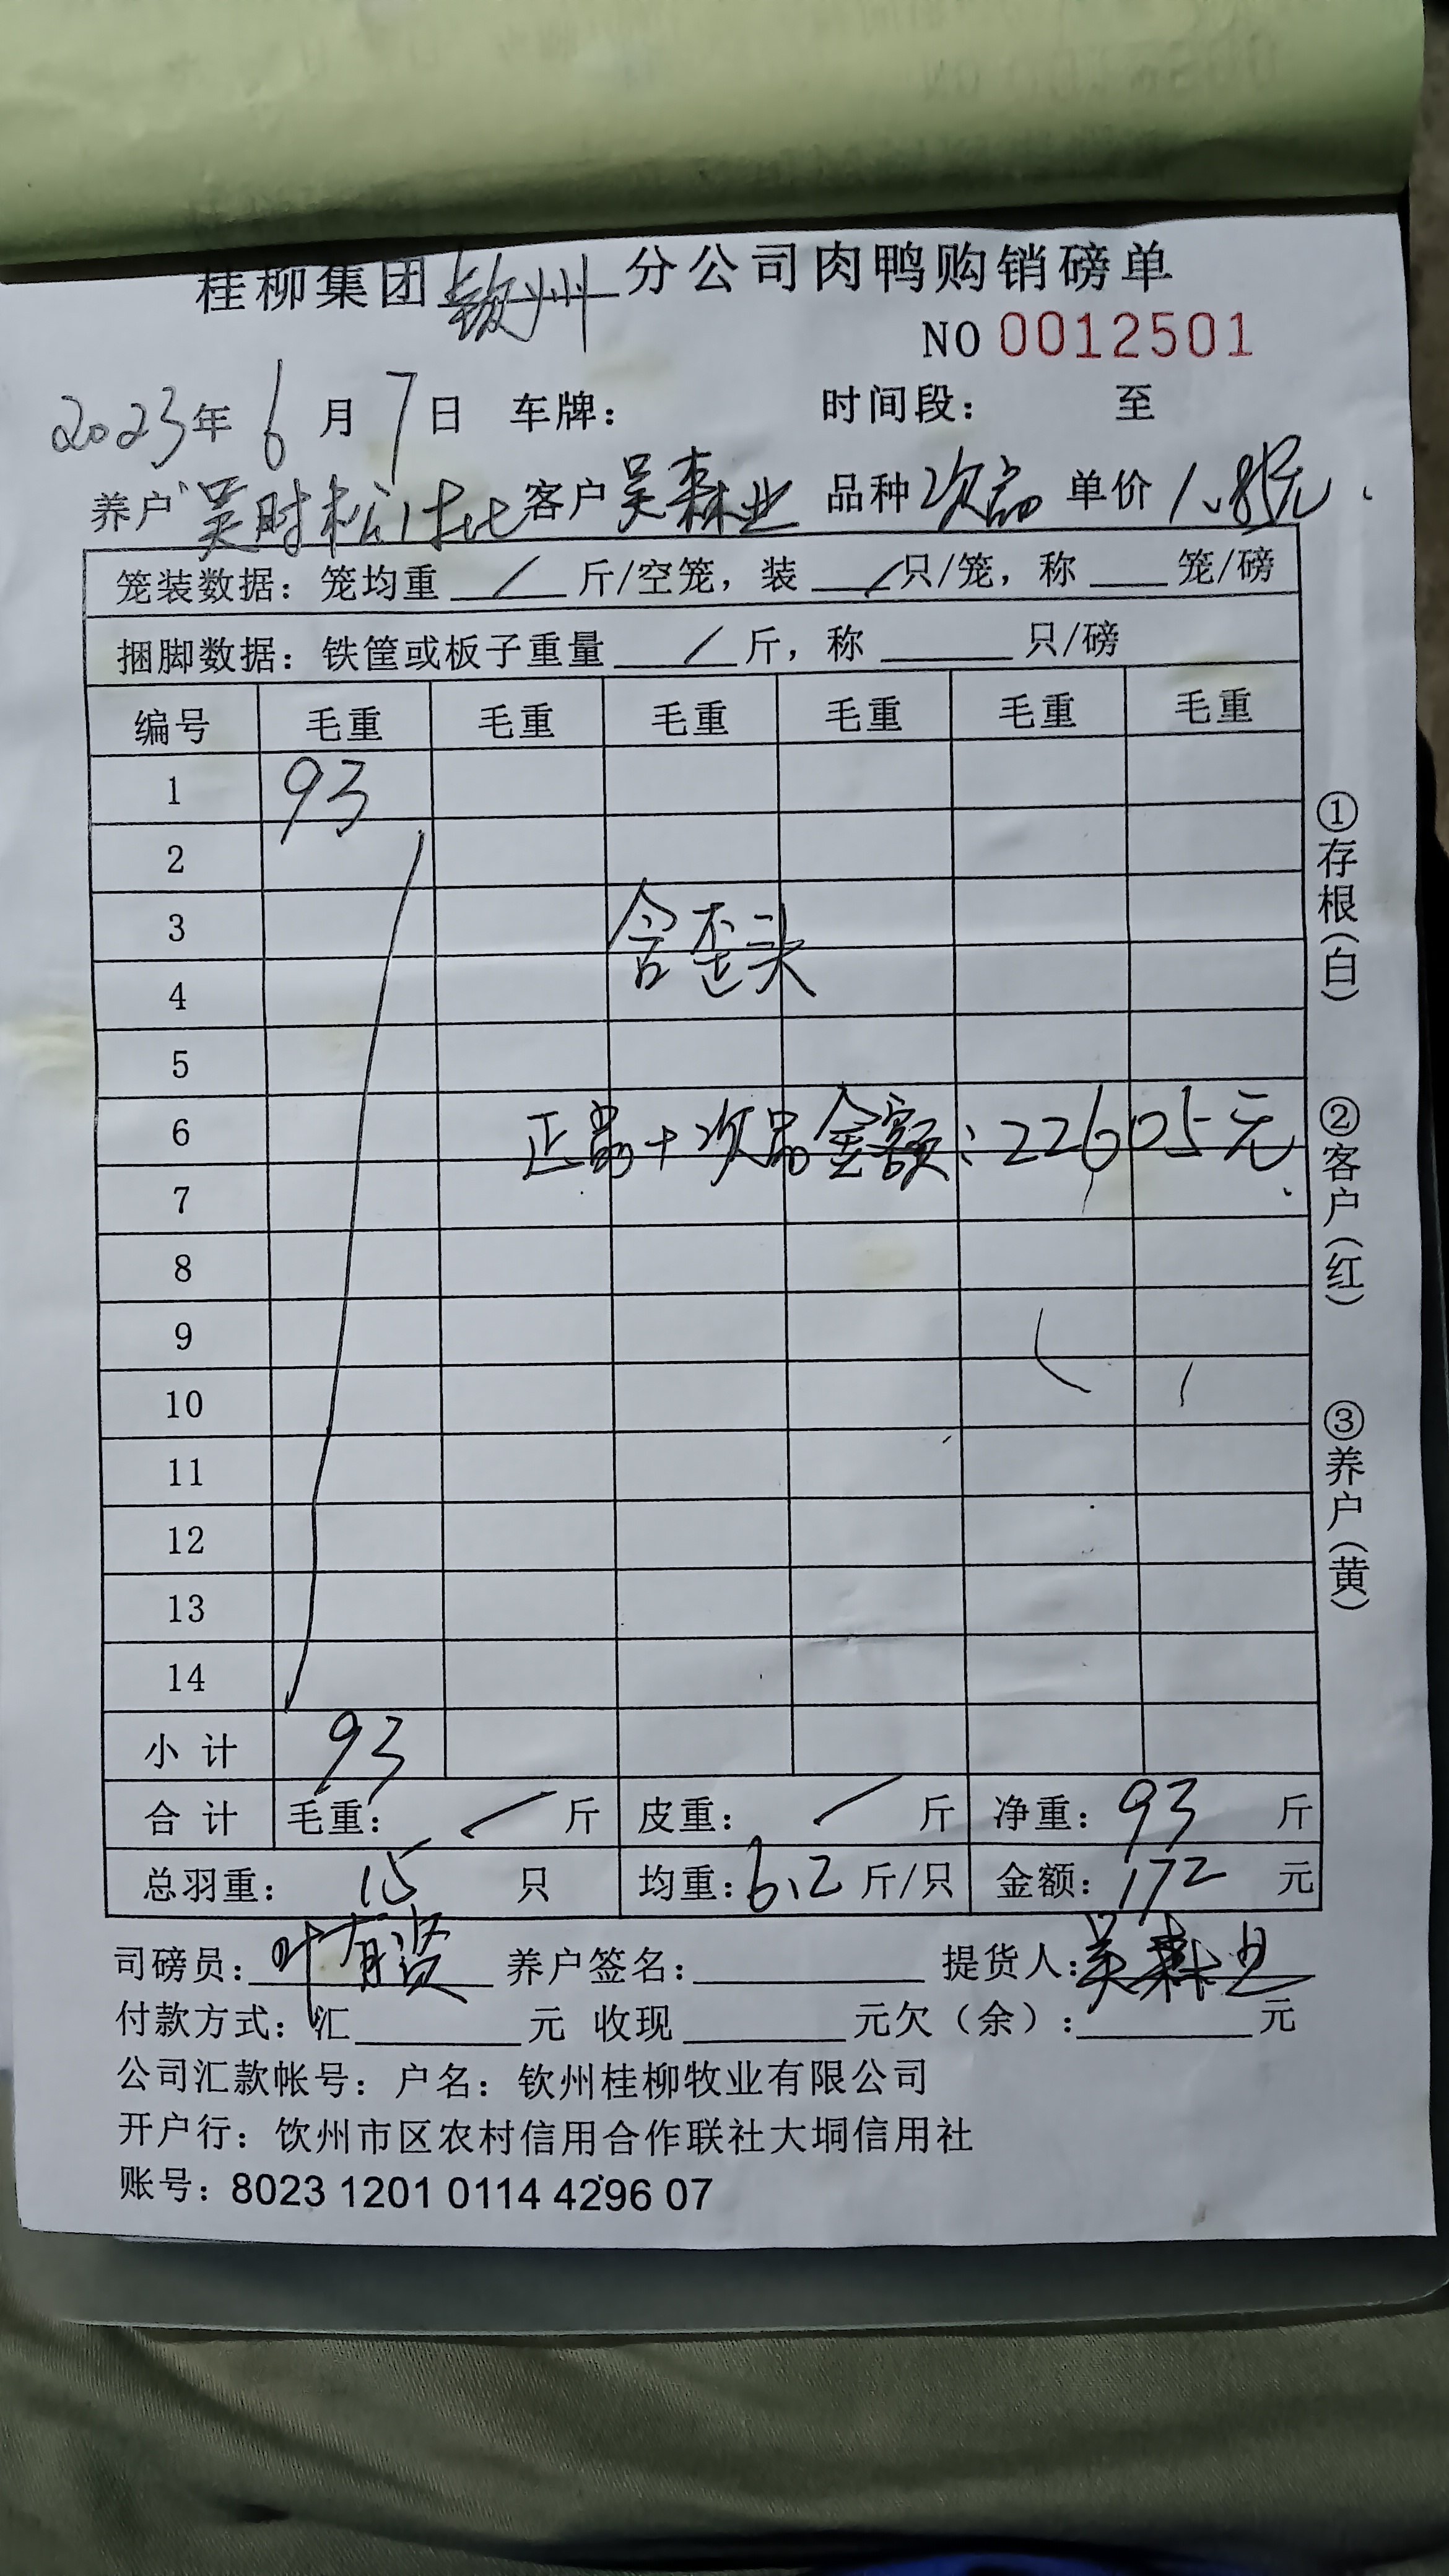 桂柳集团钦州分公司肉鸭购销磅单
NO 0012501
2023年6月7日 车牌： 时间段： 至
养户吴时松 客户吴森业 品种次品 单价1.85元
笼装数据：笼均重 / 斤/空笼，装 / 只/笼，称 笼/磅
捆脚数据：铁筐或板子重量 / 斤，称 只/磅
编号 毛重 毛重 毛重 毛重 毛重 毛重
1 93
2
3
含歪头
4
5
6
正品+次品金额：22605元
7
8
9
10
11
12
13
14
小计 93
合计 毛重： / 斤 皮重： / 斤 净重：93 斤
总羽重：15 只 均重：6.2 斤/只 金额：172 元
司磅员：叶有贤 养户签名： 提货人：吴森业
付款方式：汇 元 收现 元欠（余）： 元
公司汇款帐号：户名：钦州桂柳牧业有限公司
开户行：饮州市区农村信用合作联社大垌信用社
账号：8023 1201 0114 4296 07
①存根（白）
②客户（红）
③养户（黄）